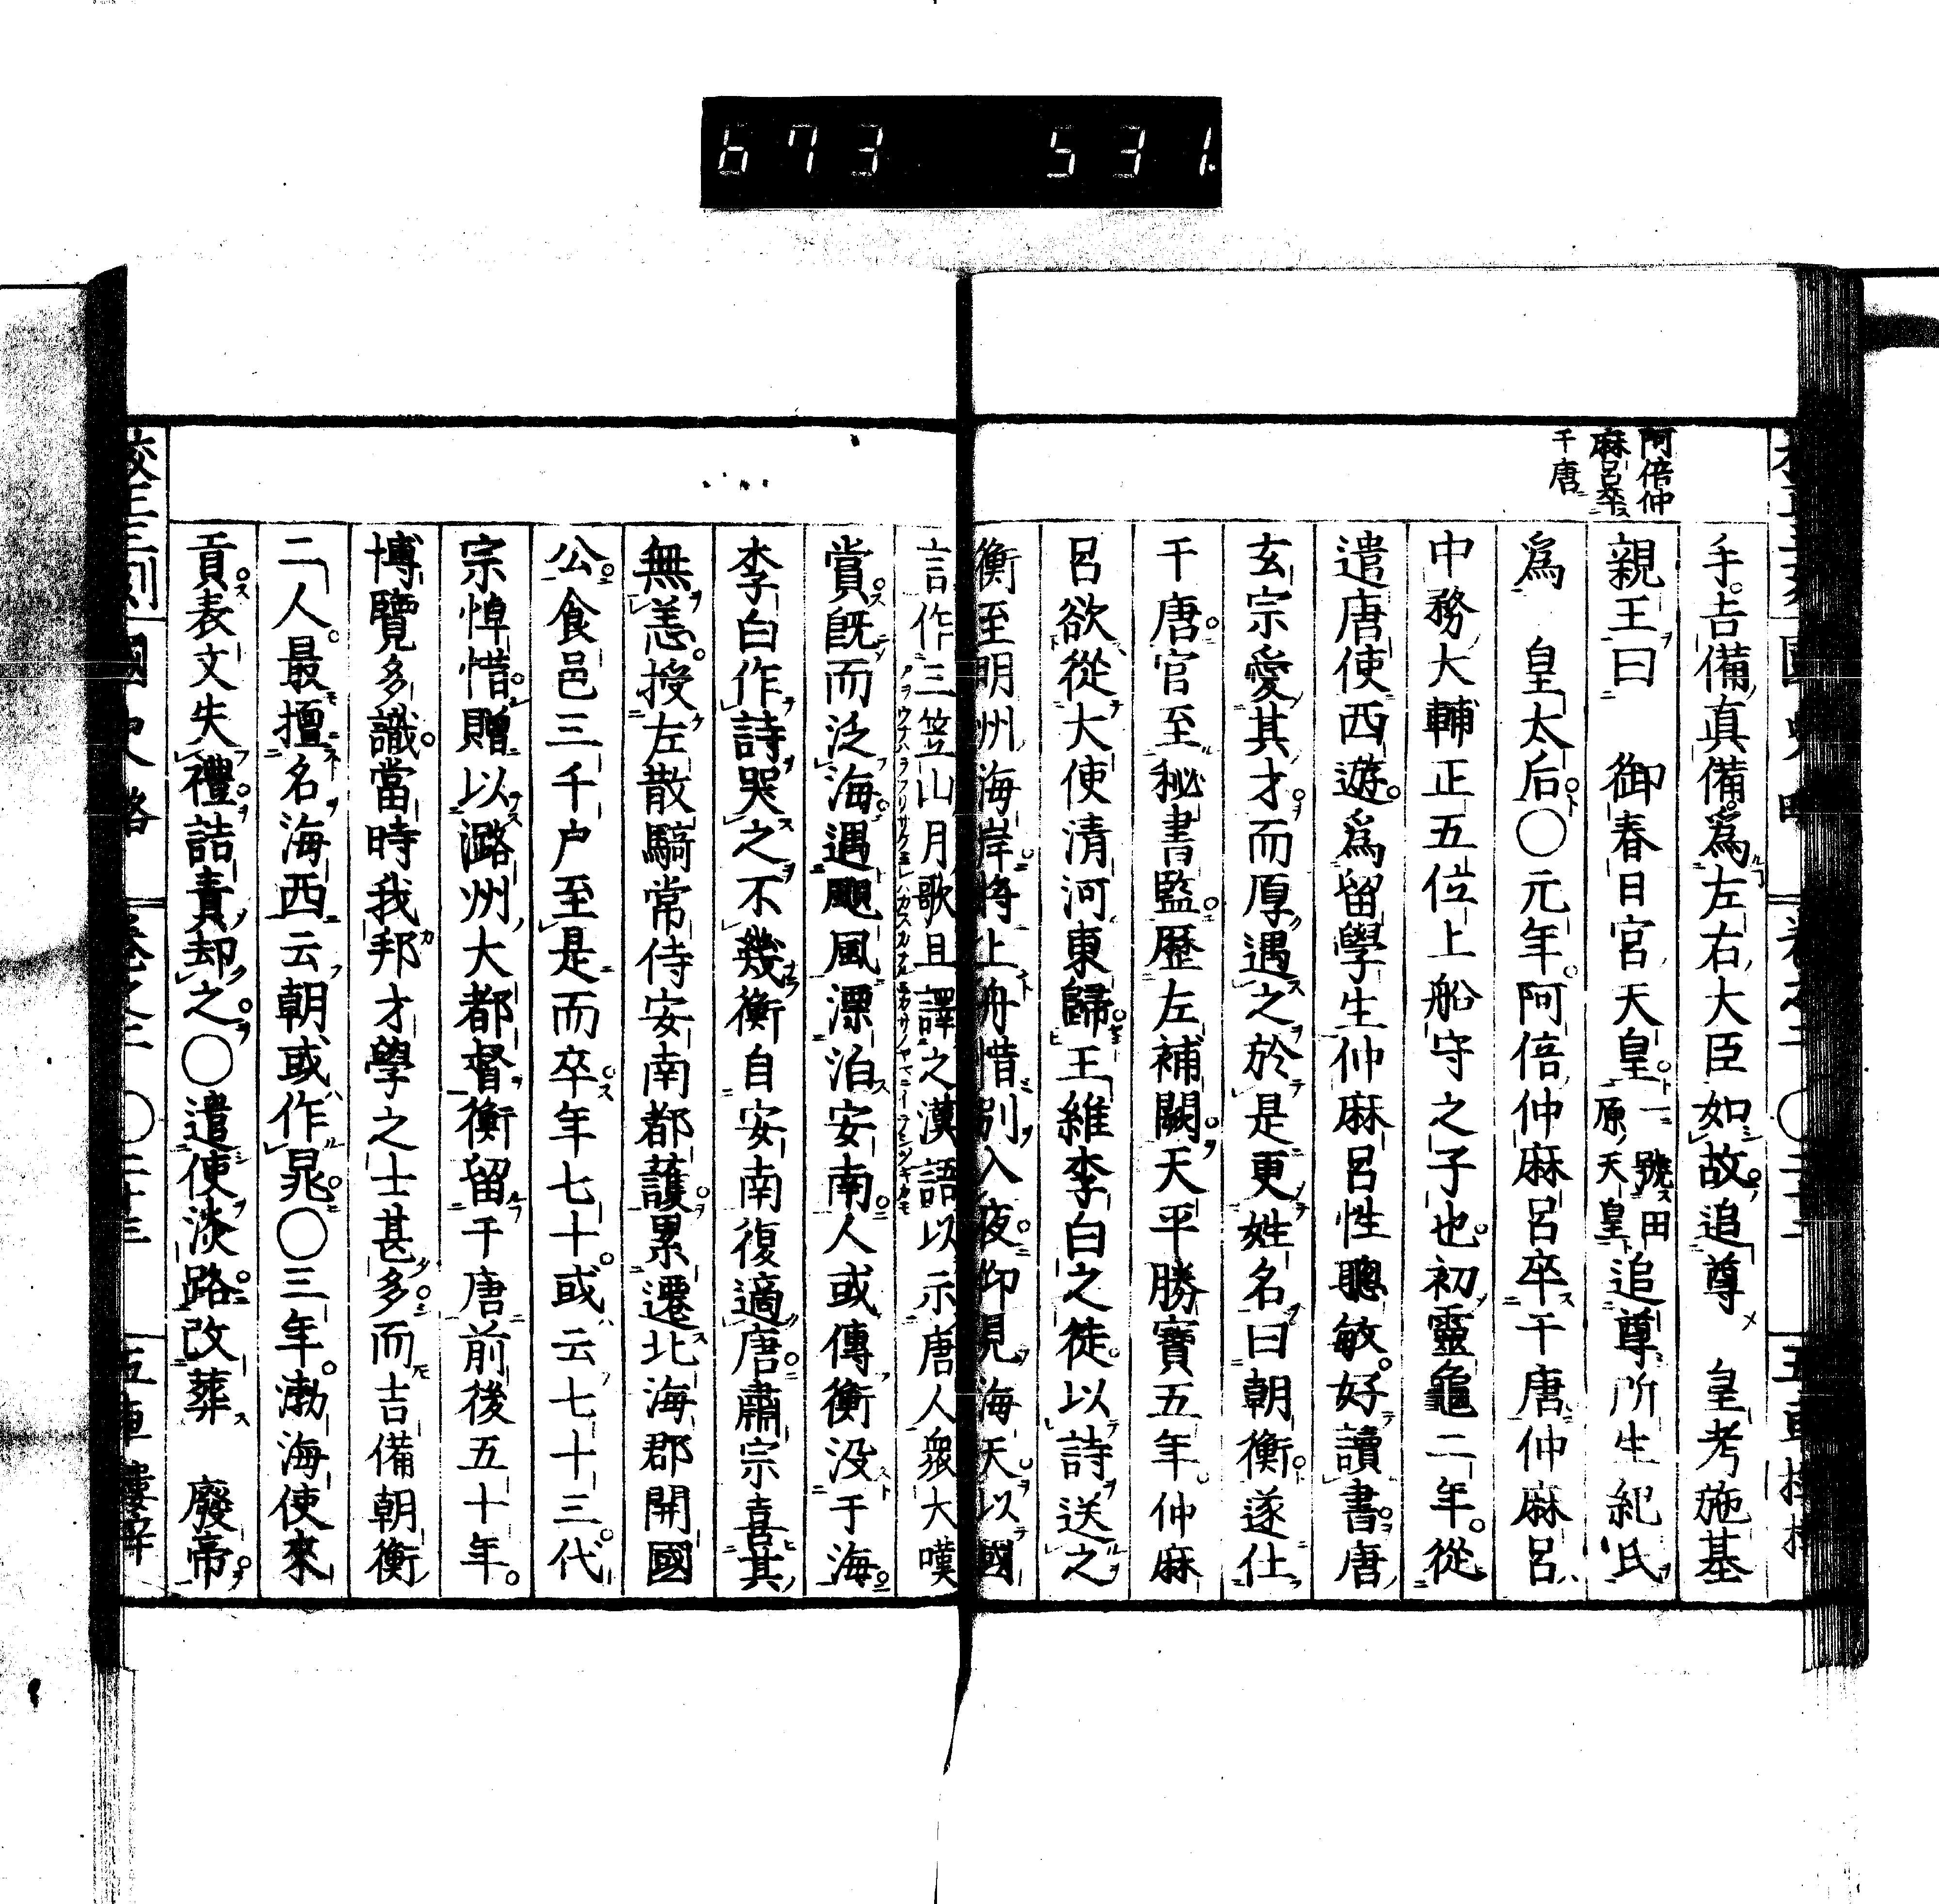 673 531
阿倍仲
麻呂卒
于唐
手吉備真備爲左右大臣如故追尊 皇考施基
親王曰 御春日宮天皇一號田原天皇追尊所生紀氏
爲 皇太后〇元年阿倍仲麻呂卒于唐仲麻呂
中務大輔正五位上船守之子也初靈龜二年從
遣唐使西遊爲留學生仲麻呂性聰敏好讀書唐
玄宗愛其才而厚遇之於是更姓名曰朝衡遂仕
于唐官至秘書監歷左補闕天平勝寶五年仲麻
呂欲從大使清河東歸王維李白之徒以詩送之
衡至明州海岸將上舟惜別入夜仰見海天以國
言作三笠山月歌且譯之漢語以示唐人衆大嘆
賞既而泛海遇颶風漂泊安南人或傳衡没于海
李白作詩哭之不幾衡自安南復適唐肅宗喜其
無恙授左散騎常侍安南都護累遷北海郡開國
公食邑三千户至是而卒年七十或云七十三代
宗悼惜贈以潞州大都督衡留于唐前後五十年
博覽多識當時我邦才學之士甚多而吉備朝衡
二人最擅名海西云朝或作晁〇三年渤海使來
貢表文失禮詰責却之〇遣使淡路改葬 廢帝